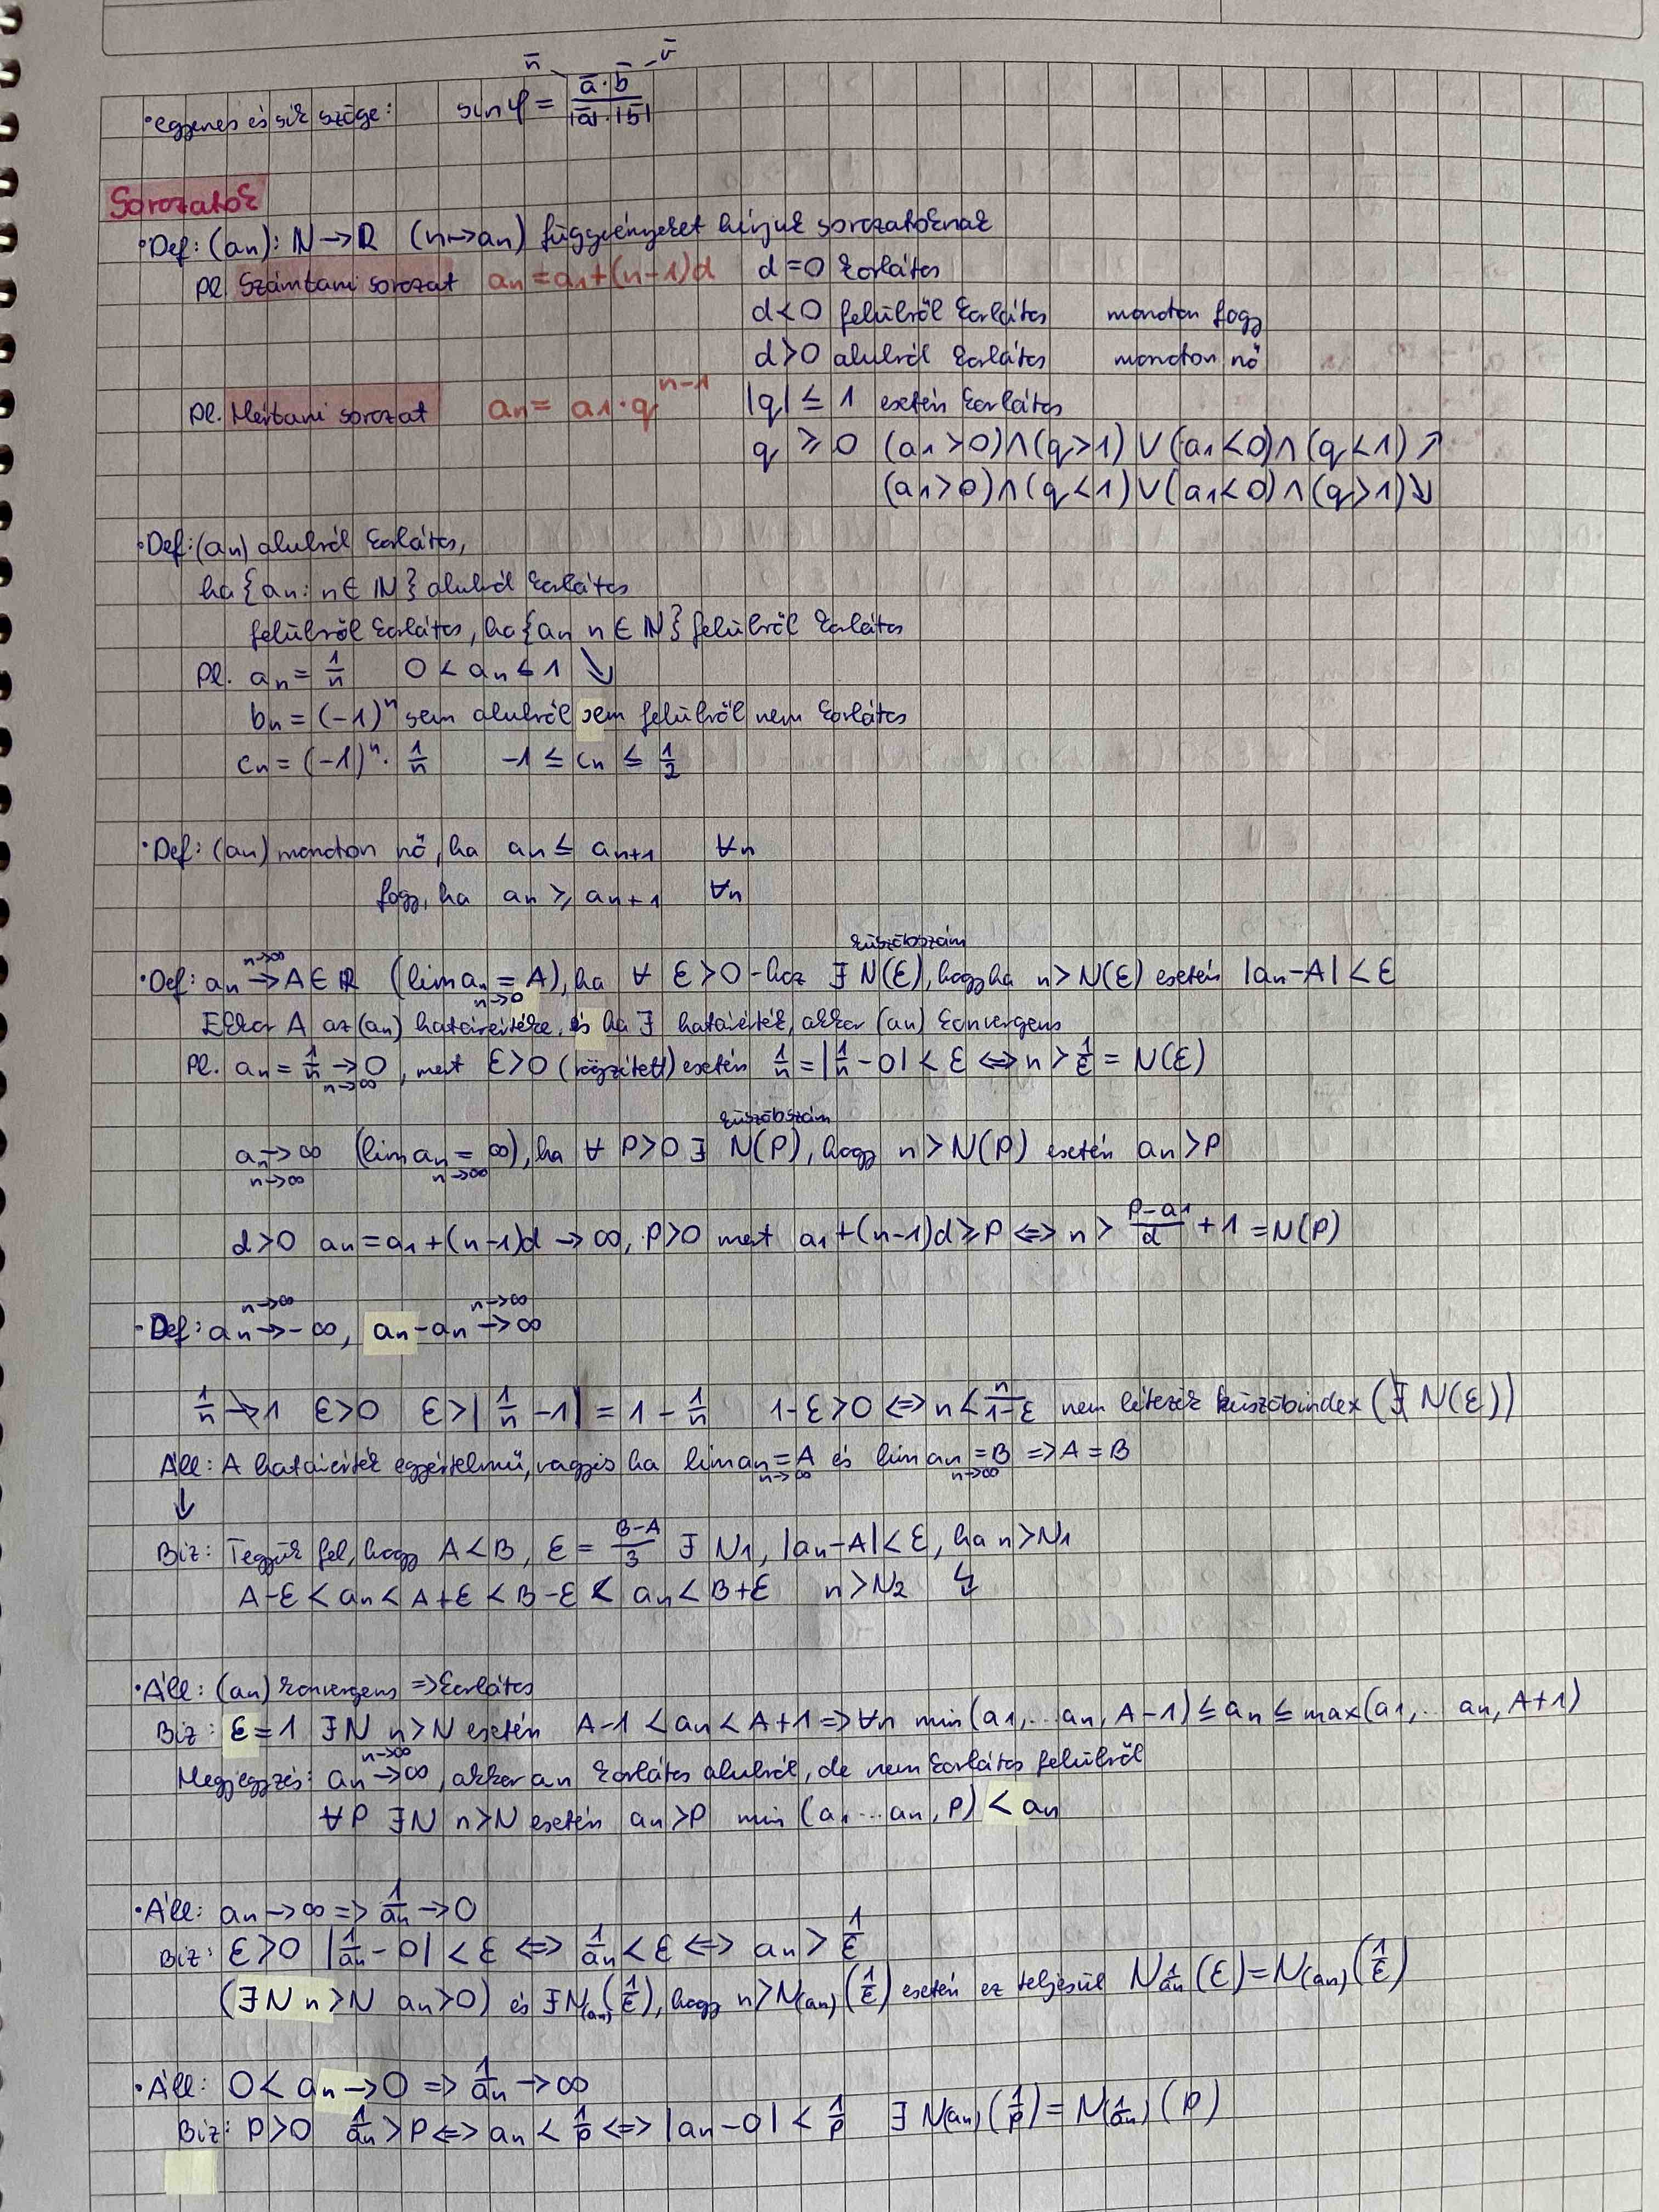 n̄ v̄
• egyenes és sík szöge: sin φ = ā·b̄ / |ā|·|b̄|
Sorozatok
• Def: (an): ℕ→ℝ (n↦an) függvényeket hívjuk sorozatoknak
Pl. Számtani sorozat an = a1+(n-1)d d=0 korlátos
d<0 felülről korlátos monoton fogy
d>0 alulról korlátos monoton nő
Pl. Mértani sorozat an = a1·q^(n-1) |q| ≤ 1 esetén korlátos
q ≥ 0 (a1>0)∧(q>1)∨(a1<0)∧(q<1)↗
(a1>0)∧(q<1)∨(a1<0)∧(q>1)↘
• Def: (an) alulról korlátos,
ha {an: n∈ℕ} alulról korlátos
felülről korlátos, ha {an n∈ℕ} felülről korlátos
Pl. an = 1/n 0 < an ≤ 1 ↘
bn = (-1)^n sem alulról sem felülről nem korlátos
cn = (-1)^n · 1/n -1 ≤ cn ≤ 1/2
• Def: (an) monoton nő, ha an ≤ an+1 ∀n
fogy, ha an ≥ an+1 ∀n
küszöbszám
• Def: an →(n→∞) A∈ℝ (lim an (n→0) = A), ha ∀ ε>0-hoz ∃ N(ε), hogy ha n>N(ε) esetén |an-A|<ε
Ekkor A az (an) határértéke, és ha ∃ határérték, akkor (an) konvergens
Pl. an = 1/n →(n→∞) 0, mert ε>0 (rögzített) esetén 1/n = |1/n - 0| < ε ⇔ n > 1/ε = N(ε)
küszöbszám
an →(n→∞) ∞ (lim an (n→∞) = ∞), ha ∀ P>0 ∃ N(P), hogy n>N(P) esetén an>P
d>0 an = a1+(n-1)d → ∞, P>0 mert a1+(n-1)d ≥ P ⇔ n > (P-a1)/d + 1 = N(P)
• Def: an →(n→∞) -∞, an-an →(n→∞) ∞
1/n ↛ 1 ε>0 ε>|1/n - 1| = 1 - 1/n 1-ε>0 ⇔ n < n/(1-ε) nem létezik küszöbindex (∄ N(ε))
Áll: A határérték egyértelmű, vagyis ha lim an (n→∞) = A és lim an (n→∞) = B => A=B
↓
Biz: Tegyük fel, hogy A<B, ε = (B-A)/3 ∃ N1, |an-A|<ε, ha n>N1
A-ε < an < A+ε < B-ε < an < B+ε n>N2 ↯
• Áll: (an) konvergens => korlátos
Biz: ε=1 ∃N n>N esetén A-1 < an < A+1 => ∀n min(a1,... an, A-1) ≤ an ≤ max(a1,... an, A+1)
Megjegyzés: an →(n→∞) ∞, akkor an korlátos alulról, de nem korlátos felülről
∀P ∃N n>N esetén an>P min (a1...an, P) < an
• Áll: an → ∞ => 1/an → 0
Biz: ε>0 |1/an - 0| < ε ⇔ 1/an < ε ⇔ an > 1/ε
(∃N n>N an>0) és ∃N(an)(1/ε), hogy n>N(an)(1/ε) esetén ez teljesül N1/an(ε) = N(an)(1/ε)
• Áll: 0 < an → 0 => 1/an → ∞
Biz: P>0 1/an > P ⇔ an < 1/P ⇔ |an-0| < 1/P ∃ N(an)(1/P) = N(1/an)(P)